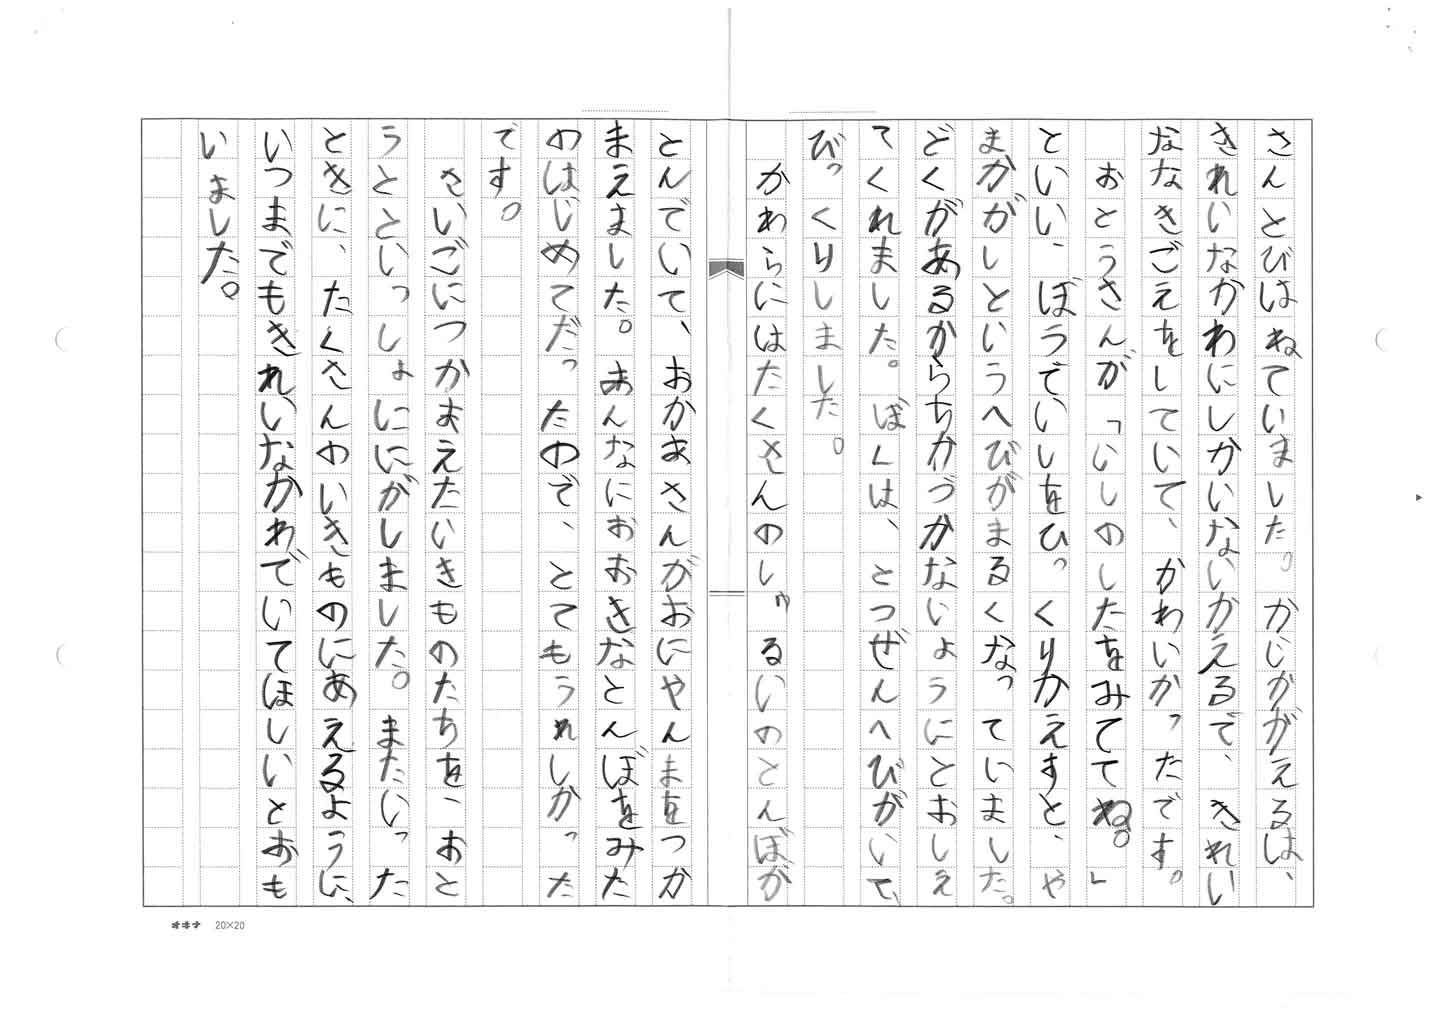 さんとびはねていました。かじかがえるは、
きれいなかわにしかいないかえるで、きれい
ななきごえをしていて、かわいかったです。
おとうさんが「いしのしたをみててね。」
といい、ぼうでいしをひっくりかえすと、や
まかがしというへびがまるくなっていました。
どくがあるからちかづかないようにとおしえ
てくれました。ぼくは、とつぜんへびがいて、
びっくりしました。
かわらにはたくさんのしゅるいのとんぼが
とんでいて、おかあさんがおにやんまをつか
まえました。あんなにおおきなとんぼをみた
のはじめてだったので、とてもうれしかった
です。
さいごにつかまえたいきものたちを、おと
うとといっしょににがしました。またいった
ときに、たくさんのいきものにあえるように、
いつまでもきれいなかわでいてほしいとおも
いました。
オキナ 20×20